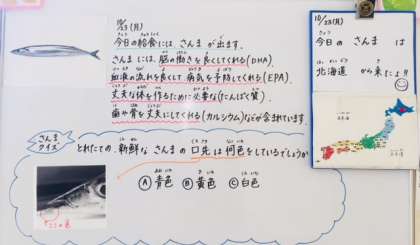 10/23(月)
今日の給食には さんま が 出ます。
さんま には、脳の働きを良くしてくれる(DHA)、
血液の流れを良くして 病気を予防してくれる(EPA)、
丈夫な体を作るために必要な(たんぱく質)、
歯や骨を丈夫にしてくれる(カルシウム)などが含まれています。
さんま
クイズ
とれたての、新鮮な さんまの 口先は 何色をしているでしょうか
Ⓐ 青色 Ⓑ 黄色 Ⓒ 白色
10/23(月)
今日の さんま は
北海道 から来たよ!!